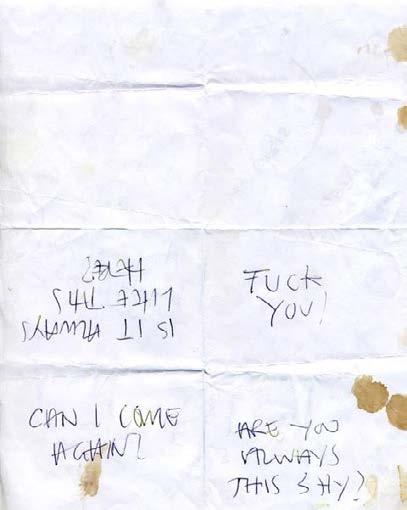 IS IT ALWAYS
LIKE THIS
HERE?
FUCK
YOU!
CAN I COME
AGAIN?
ARE YOU
ALWAYS
THIS SHY?